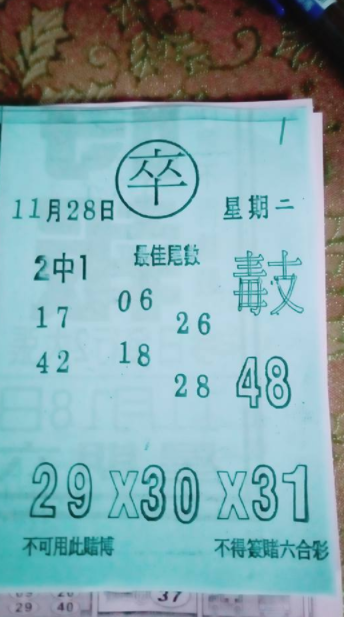 1
卒
11月28日
星期二
2中1
最佳尾數
17
06
26
42
18
28
48
29X30X31
不可用此賭博
不得簽賭六合彩
37
29 40